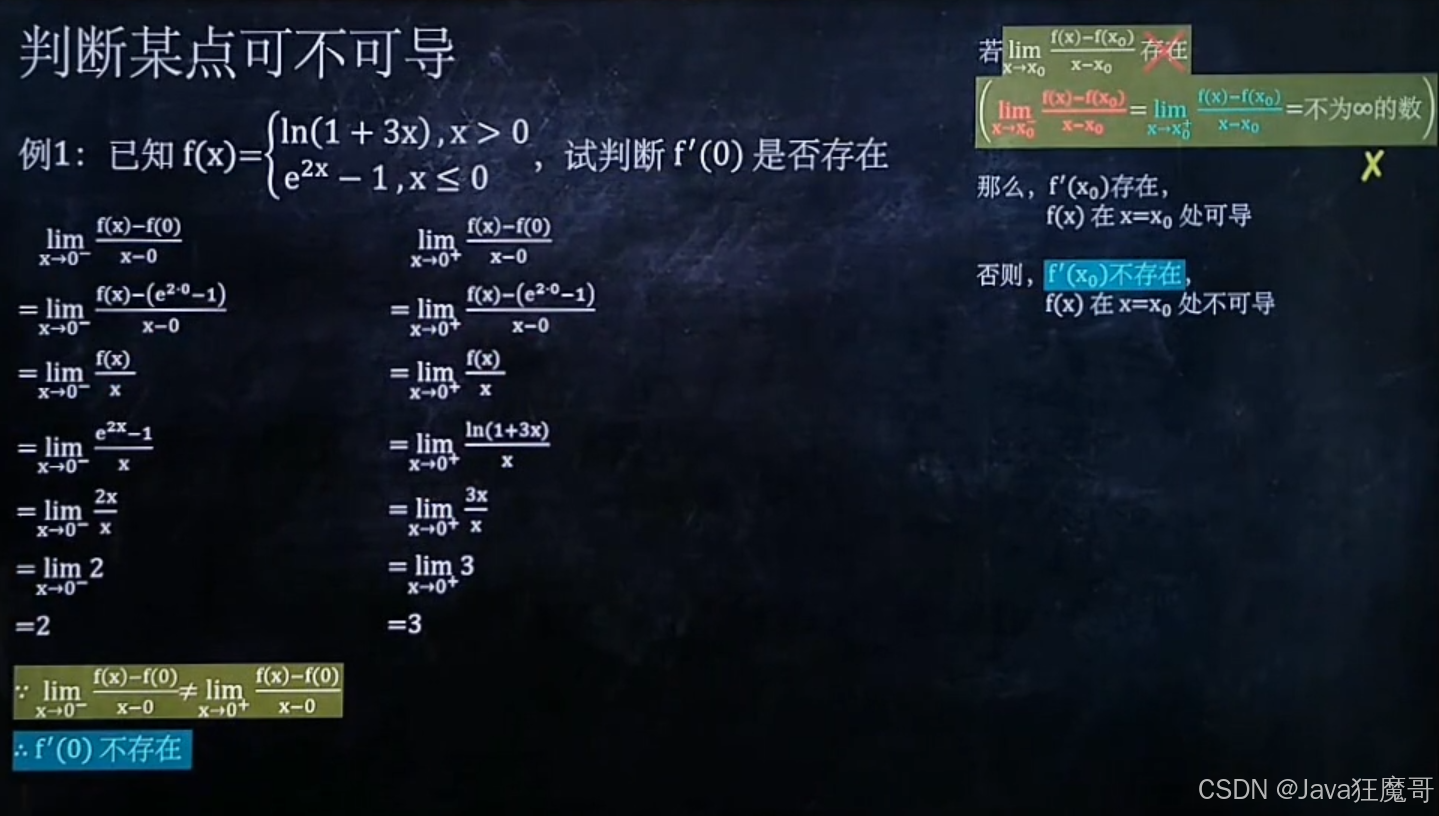 判断某点可不可导
例1：已知 f(x)={ln(1 + 3x) , x > 0
e^{2x} − 1 , x ≤ 0 ，试判断 f′(0) 是否存在
lim_{x→0⁻} (f(x)−f(0))/(x−0)
=lim_{x→0⁻} (f(x)−(e^{2·0}−1))/(x−0)
=lim_{x→0⁻} f(x)/x
=lim_{x→0⁻} (e^{2x}−1)/x
=lim_{x→0⁻} 2x/x
=lim_{x→0⁻} 2
=2
lim_{x→0⁺} (f(x)−f(0))/(x−0)
=lim_{x→0⁺} (f(x)−(e^{2·0}−1))/(x−0)
=lim_{x→0⁺} f(x)/x
=lim_{x→0⁺} ln(1+3x)/x
=lim_{x→0⁺} 3x/x
=lim_{x→0⁺} 3
=3
∵ lim_{x→0⁻} (f(x)−f(0))/(x−0) ≠ lim_{x→0⁺} (f(x)−f(0))/(x−0)
∴ f′(0) 不存在
若 lim_{x→x₀} (f(x)−f(x₀))/(x−x₀) 存在
(lim_{x→x₀⁻} (f(x)−f(x₀))/(x−x₀) = lim_{x→x₀⁺} (f(x)−f(x₀))/(x−x₀) =不为∞的数)
✗
那么，f′(x₀)存在，
f(x) 在 x=x₀ 处可导
否则，f′(x₀)不存在，
f(x) 在 x=x₀ 处不可导
CSDN @Java狂魔哥